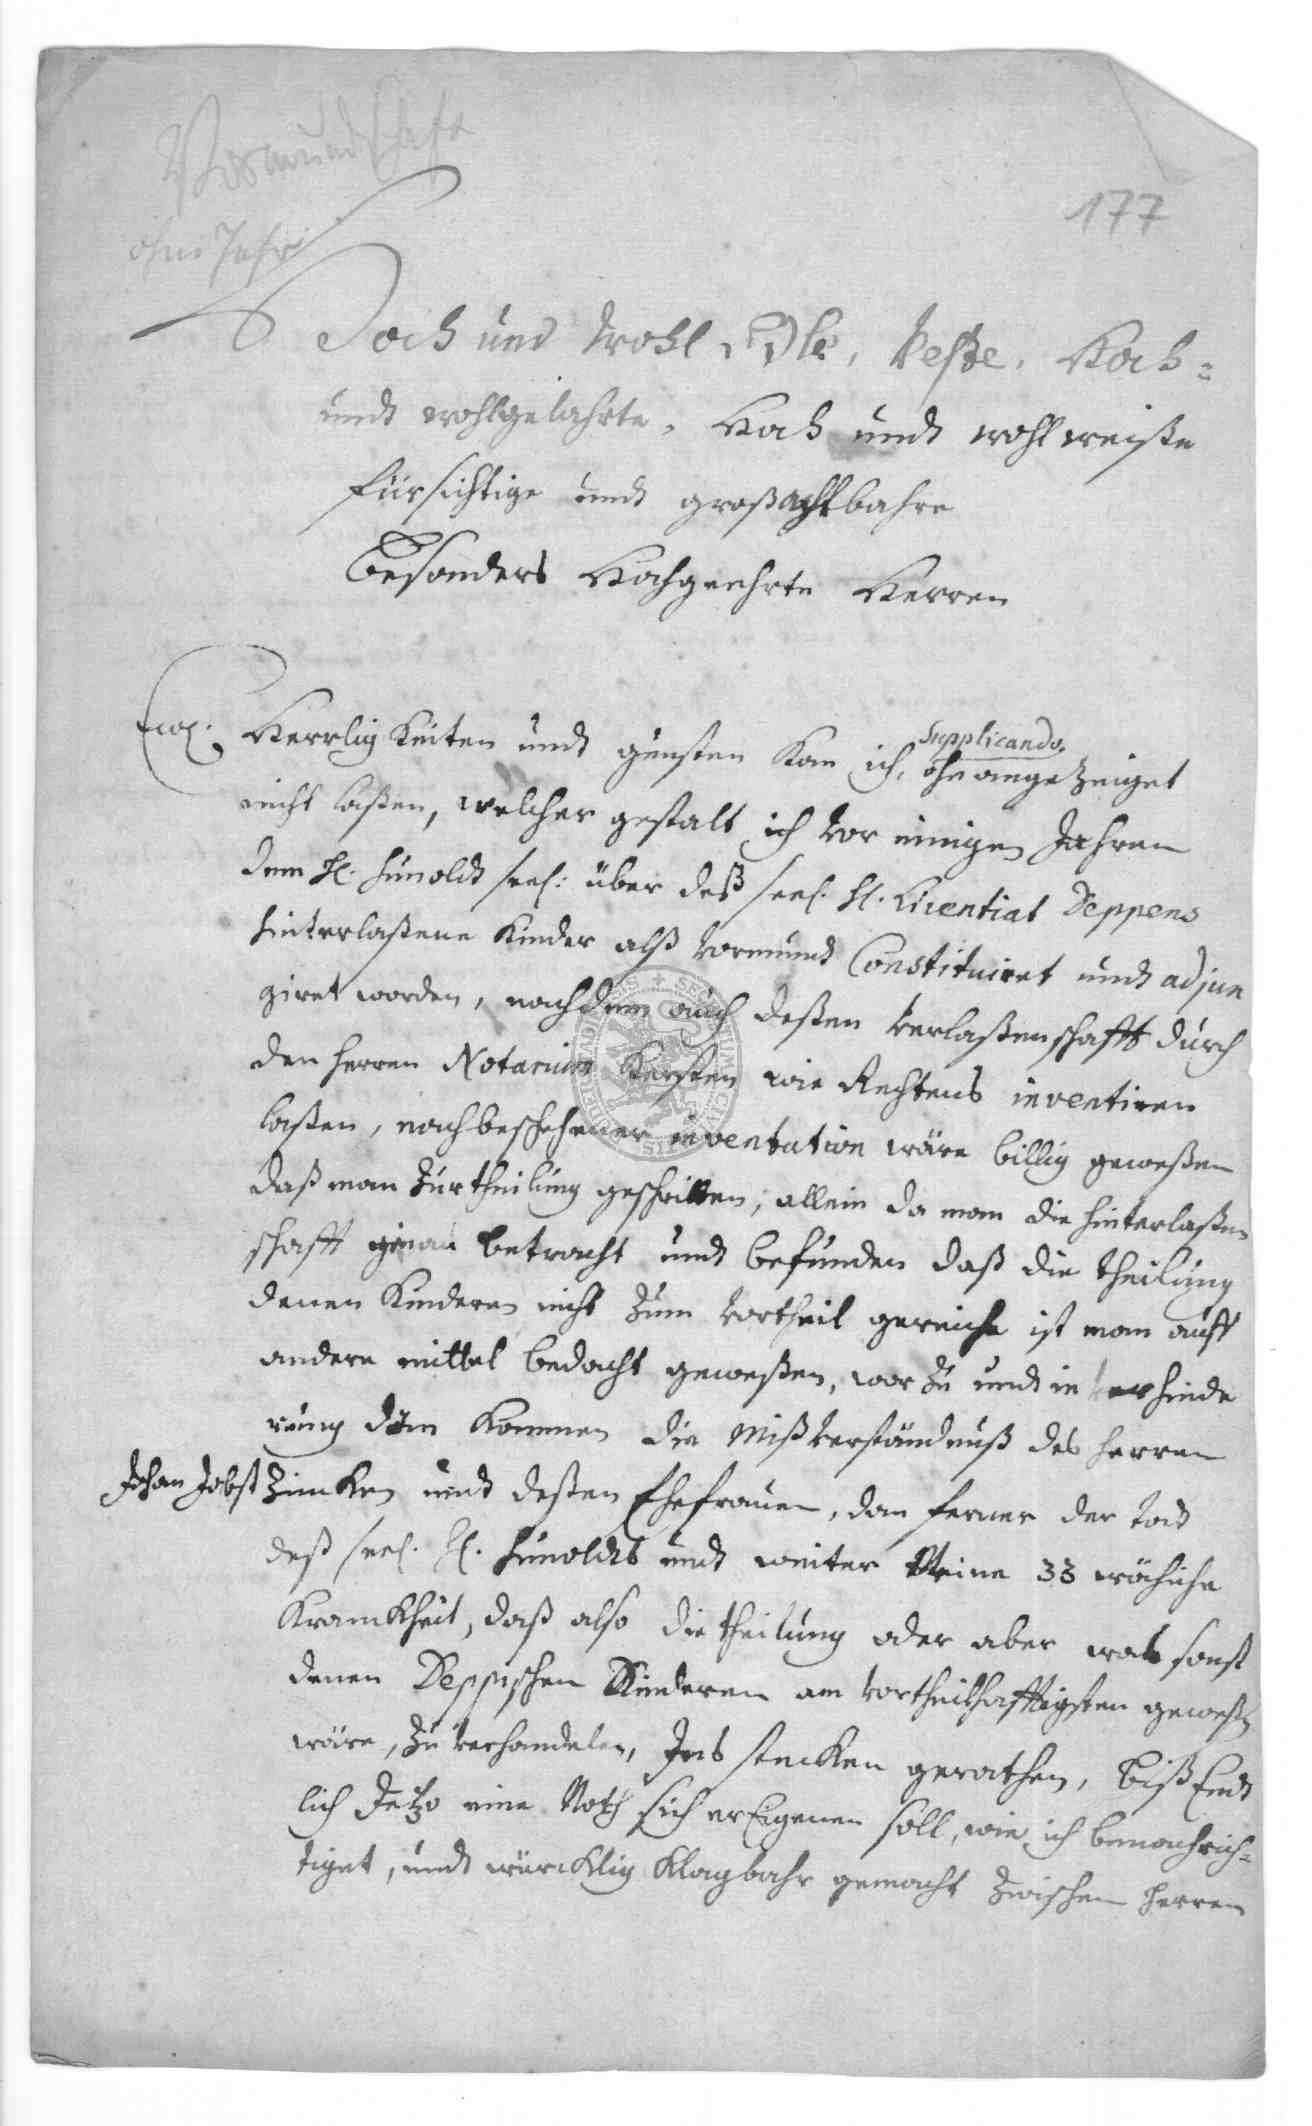 Vormundschaft
177
ohne Jahr
Hoch und Wohl Edle, Veste, Hoch-
undt wohlgelahrte, Hoch undt wohl weiße
fürsichtige undt großachtbahre
Besonders Hochgeehrte Herren
Supplicando
Ew. Herrligkeiten undt gunsten kan ich, ohnangezeiget
nicht laßen, welcher gestalt ich vor einigen Jahren
dem H. Hunoldt seel. über deß seel. H. Licentiat Deppens
hinterlaßene Kinder alß vormundt Constituiret undt adjun
giret worden, nachdem auch deßen verlaßenschafft durch
den Herren Notarium Kersten wie Rechtens inventiren
laßen, nach beschehener inventation wäre billig geweßen
daß man zur theilung geschritten, allein da man die hinterlaßen
schafft genau betracht undt befunden daß die theilung
denen Kinderen nicht zum vortheil gereiche ist man auff
andere mittel bedacht geweßen, wor zu undt in verhinde
rung kommen die Mißverständnuß des Herren
Johan Jobst Zimken undt deßen Ehefrauen, dan ferner der todt
deß seel. H. Hunoldts undt weiter Meine 33 wöchiche
Kranckheit, daß also die theilung oder aber was sonst
denen Deppischen Kinderen am vortheilhafftigsten geweßen
wäre, zu verhandelen, Ins stecken gerathen, biß Endt
lich Jetzo eine Noth sich er Eigenen soll, wie ich benachrich-
tiget, undt würcklig Klagbahr gemacht zwischen Herren